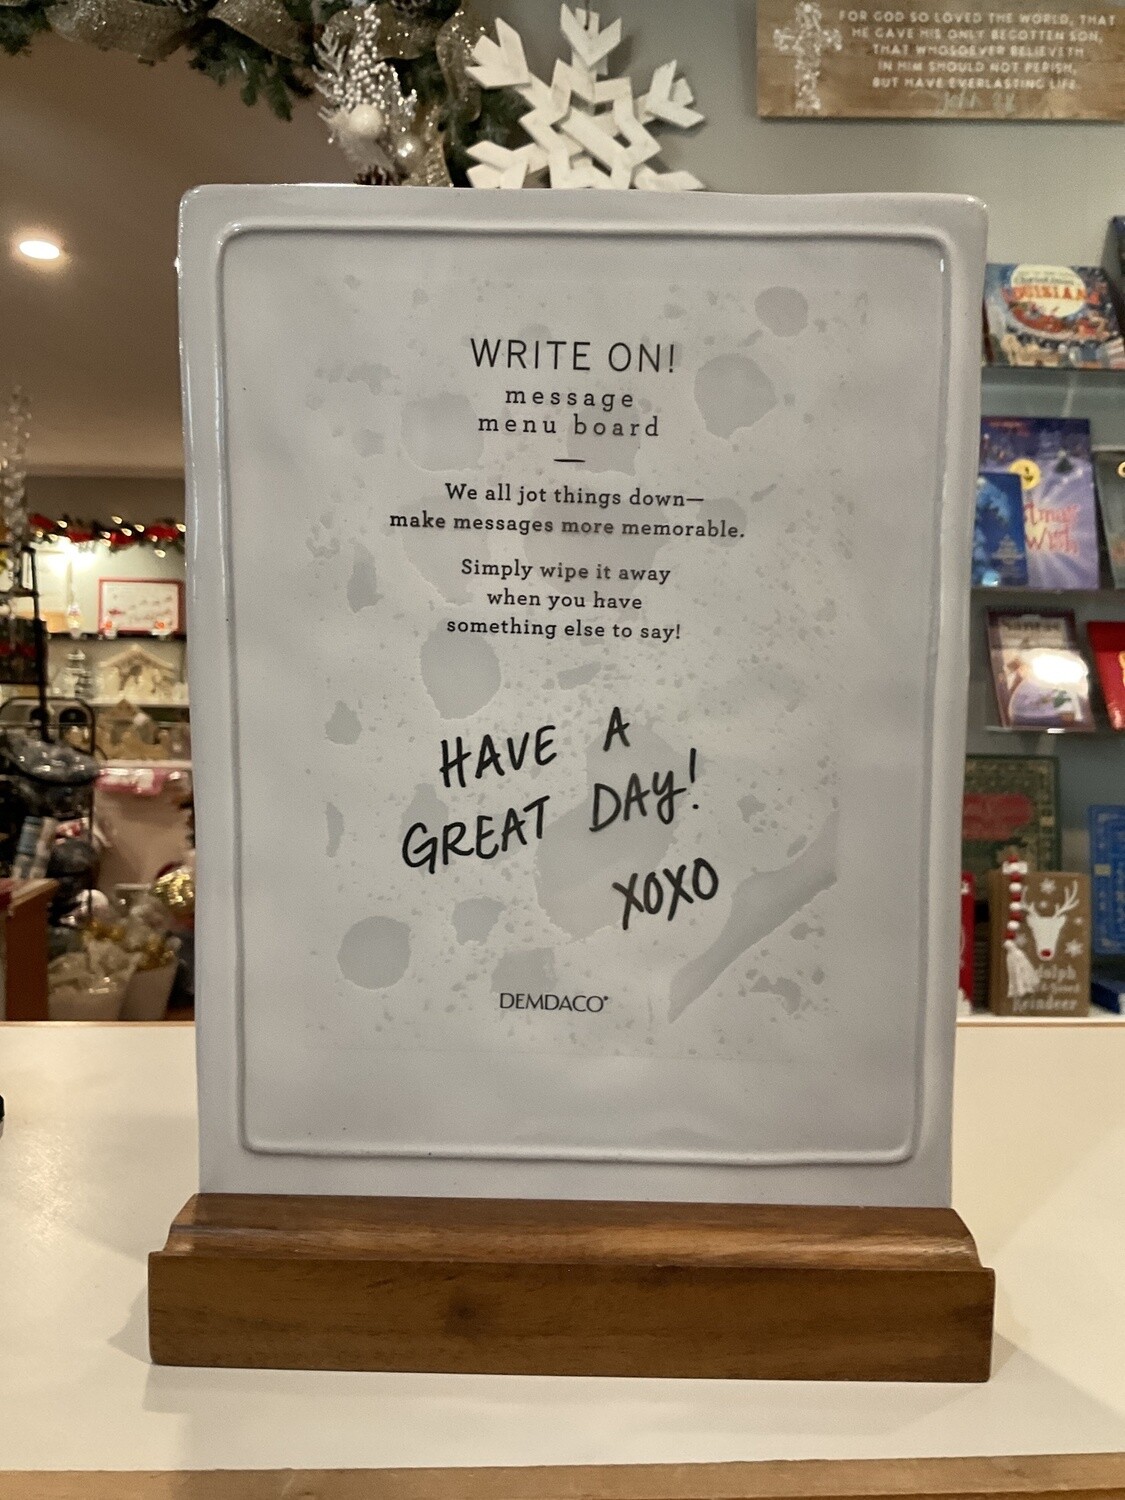 FOR GOD SO LOVED THE WORLD, THAT
HE GAVE HIS ONLY BEGOTTEN SON,
THAT WHOSOEVER BELIEVETH
IN HIM SHOULD NOT PERISH,
BUT HAVE EVERLASTING LIFE.
WRITE ON!
message
menu board
We all jot things down—
make messages more memorable.
Simply wipe it away
when you have
something else to say!
HAVE A
GREAT DAY!
XOXO
DEMDACO
Christmas
LOUISIANA
Wish
Reindeer